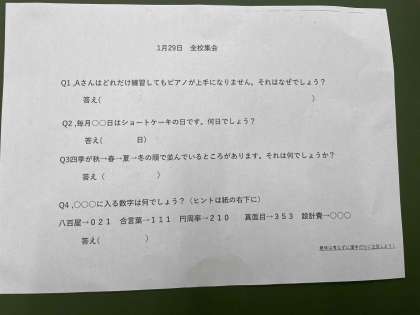 1月29日 全校集会
Q1,Aさんはどれだけ練習してもピアノが上手になりません。それはなぜでしょう?
答え( )
Q2,毎月○○日はショートケーキの日です。何日でしょう?
答え( 日)
Q3四季が秋→春→夏→冬の順で並んでいるところがあります。それは何でしょうか?
答え( )
Q4,○○○に入る数字は何でしょう?(ヒントは紙の右下に)
八百屋→021 合言葉→111 円周率→210 真面目→353 設計費→○○○
答え( )